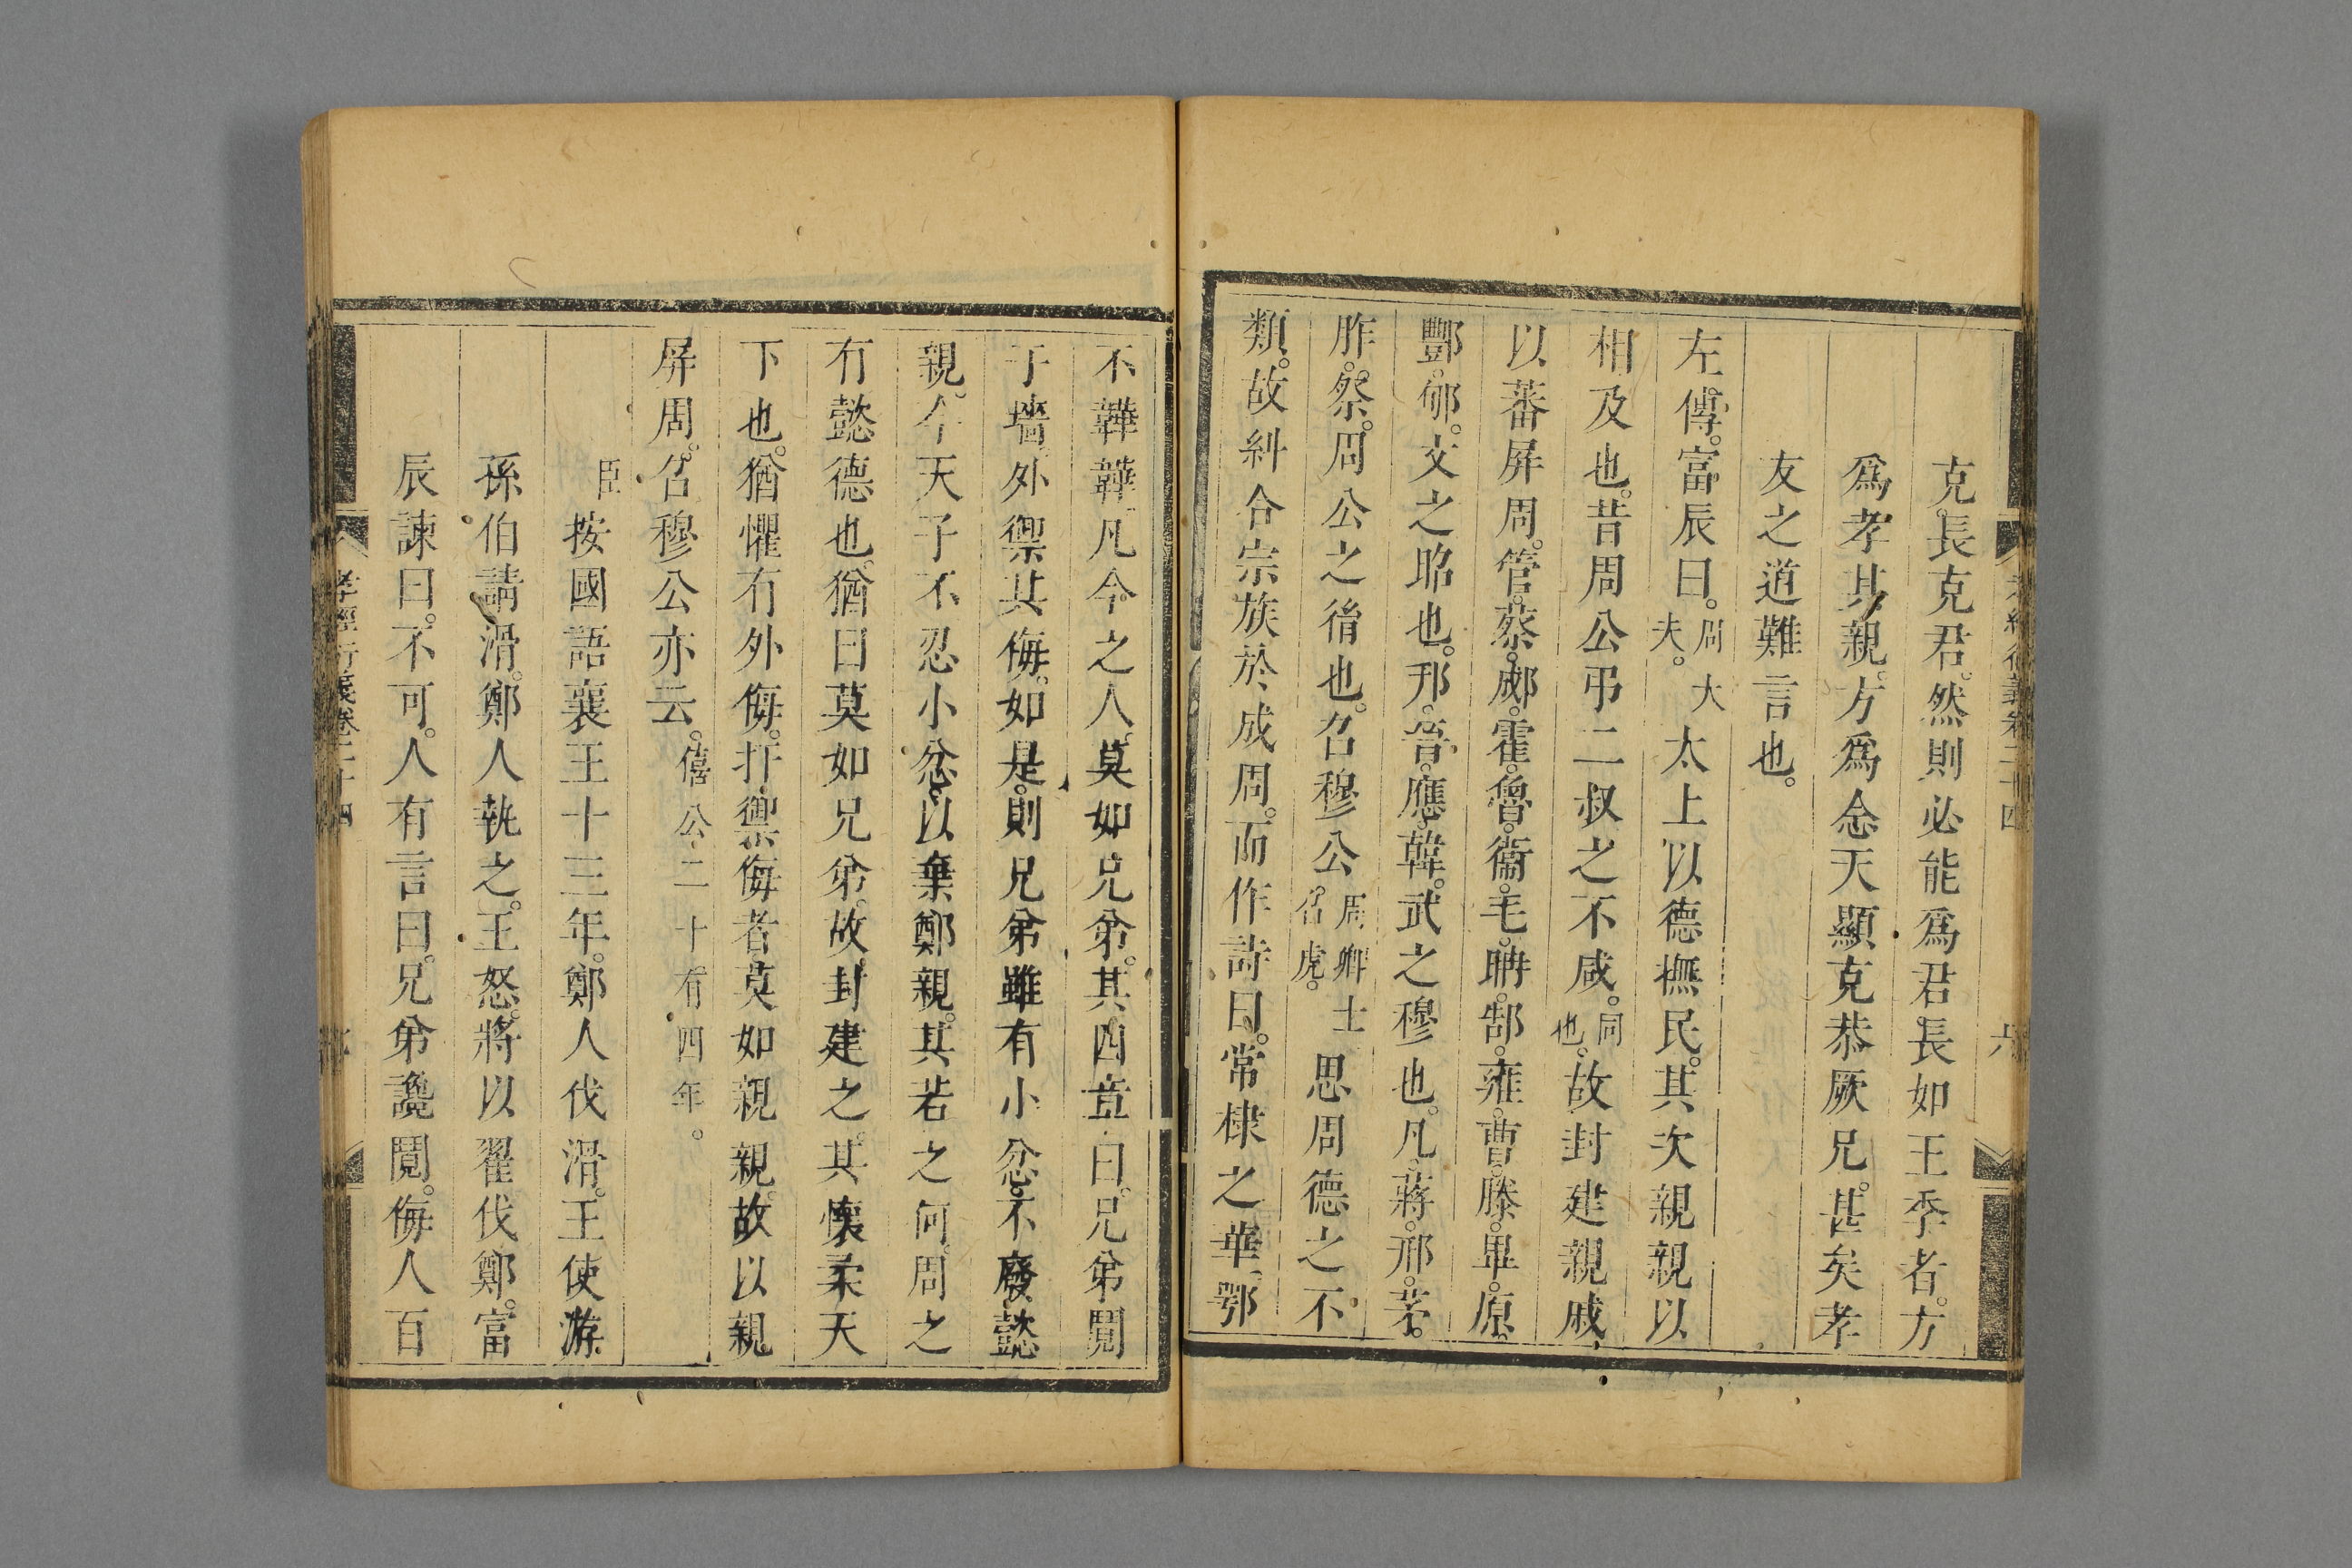 克。長克君。然則必能爲君長如王季者。方
爲孝其親。方爲念天顯克恭厥兄。甚矣孝
友之道難言也。
左傳。富辰曰。周大夫。太上以德撫民。其次親親以
相及也。昔周公弔二叔之不咸。同也。故封建親戚。
以蕃屏周。管。蔡。郕。霍。魯。衞。毛。聃。郜。雍。曹。滕。畢。原。
酆。郇。文之昭也。邘。晉。應。韓。武之穆也。凡。蔣。邢。茅。
胙。祭。周公之胤也。召穆公。周卿士召虎。思周德之不
類。故糾合宗族於成周。而作詩曰。常棣之華。鄂
不韡韡。凡今之人。莫如兄弟。其四章曰。兄弟鬩
于墻。外禦其侮。如是。則兄弟雖有小忿。不廢懿
親。今天子不忍小忿。以棄鄭親。其若之何。周之
有懿德也。猶曰莫如兄弟。故封建之。其懷柔天
下也。猶懼有外侮。扞禦侮者。莫如親親。故以親
屏周。召穆公亦云。僖公二十有四年。
臣按國語襄王十三年。鄭人伐滑。王使游
孫伯請滑。鄭人執之。王怒。將以翟伐鄭。富
辰諫曰。不可。人有言曰。兄弟讒鬩。侮人百
孝經衍義卷二十四